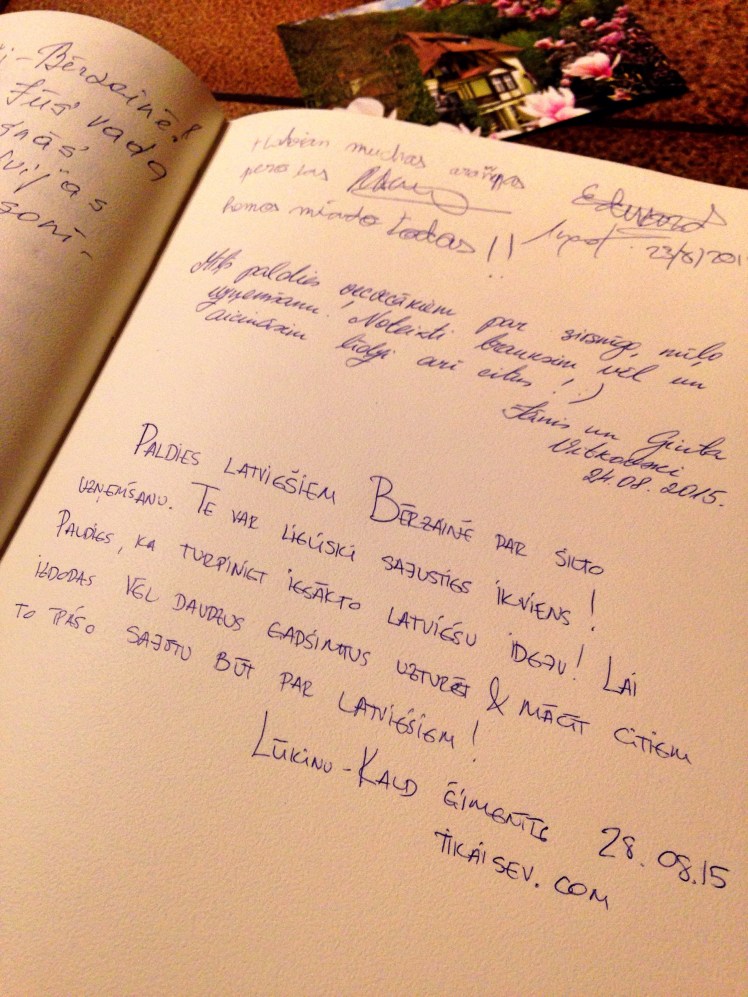 i-Bērzainē!
Jūs vada
vijas
soni-
Habían muchas arañas
pero las
hemos matado todas!!
23/8/201
Mīļš paldies par sirsnīgo, mīļo
uzņemšanu. Noteikti brauksim vēl un
aicināsim līdzi arī citus! :)
Jānis un Ginta
Vitkovski
24.08.2015.
PALDIES LATVIEŠIEM BĒRZAINĒ PAR SILTO
UZŅEMŠANU. TE VAR LIELISKI SAJUSTIES IKVIENS!
PALDIES, KA TURPINIET IESĀKTO LATVIEŠU IDEJU! LAI
IZDODAS VĒL DAUDZUS GADSIMTUS UZTURĒT & MĀCĪT CITIEM
TO ĪPAŠO SAJŪTU BŪT PAR LATVIEŠIEM!
LŪKINU-KALD ĢIMENĪTE 28.08.15
TIKAISEV.COM